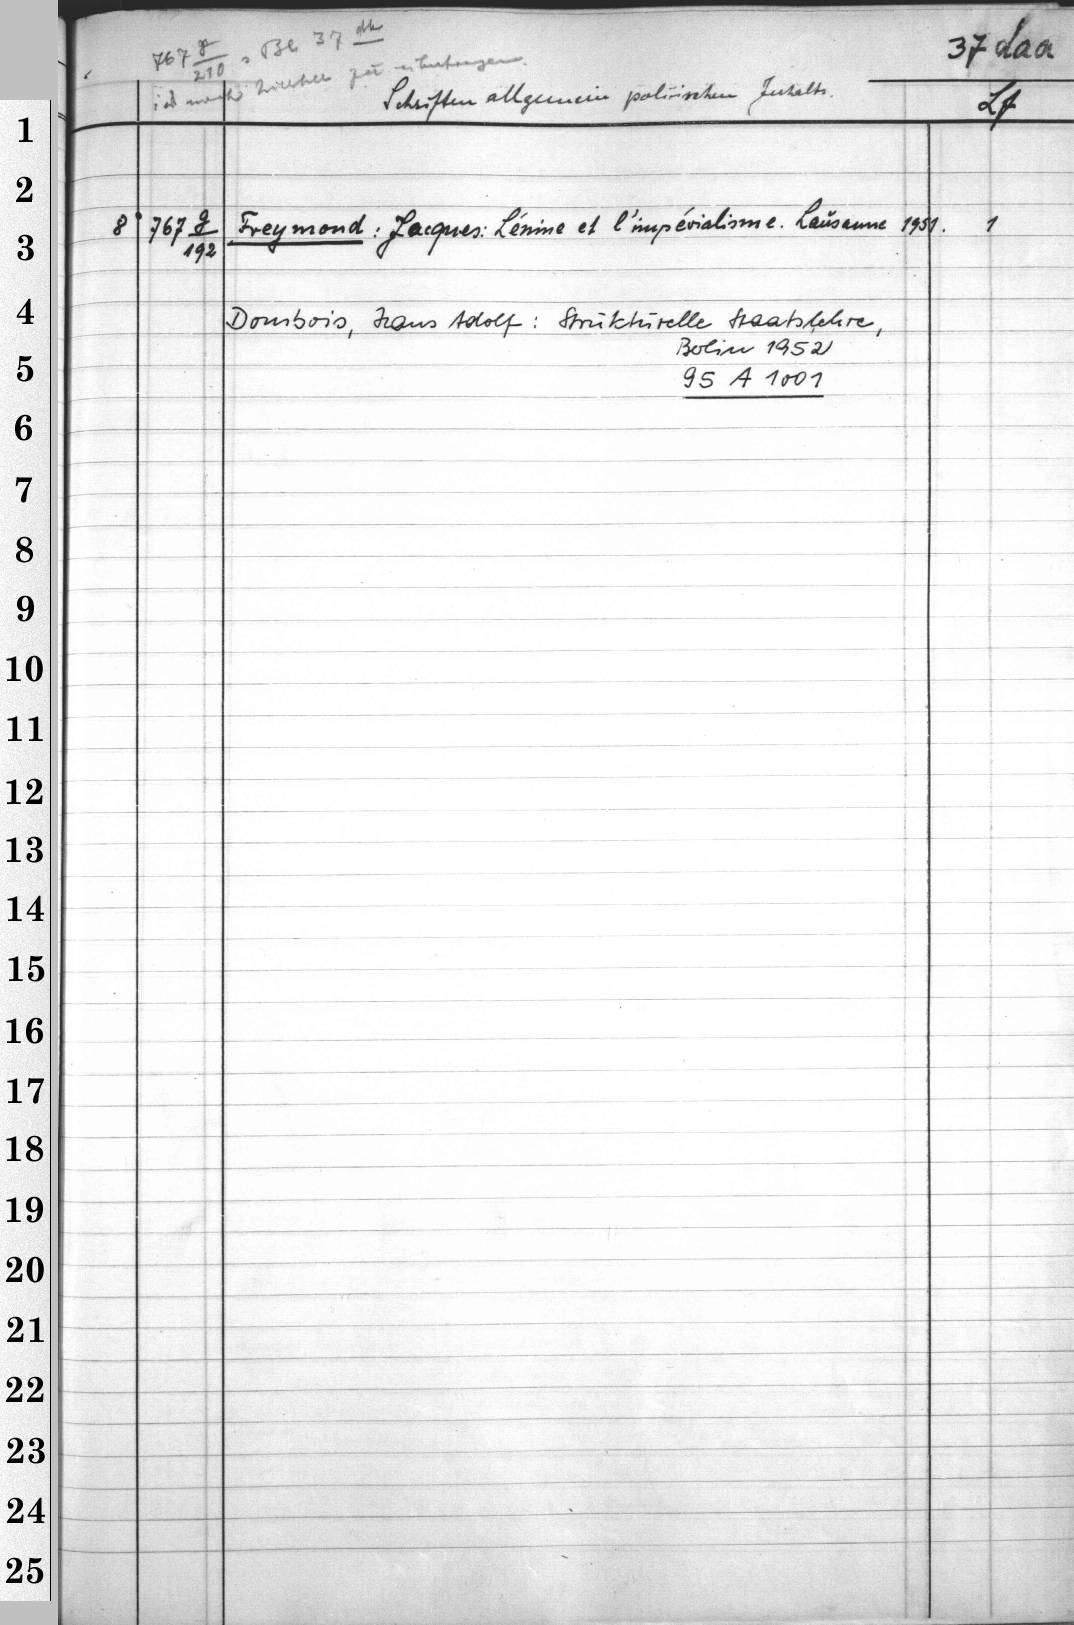 767 g/210 s. Bl 37
37 daa
Schriften allgemein politischen Inhalts.
Lf
1
2
8° 767 g/192 Freymond: Jacques: Lénine et l'impérialisme. Lausanne 1951. 1
3
4 Dombois, Hans Adolf: Strukturelle Staatslehre,
Berlin 1952
5 95 A 1001
6
7
8
9
10
11
12
13
14
15
16
17
18
19
20
21
22
23
24
25